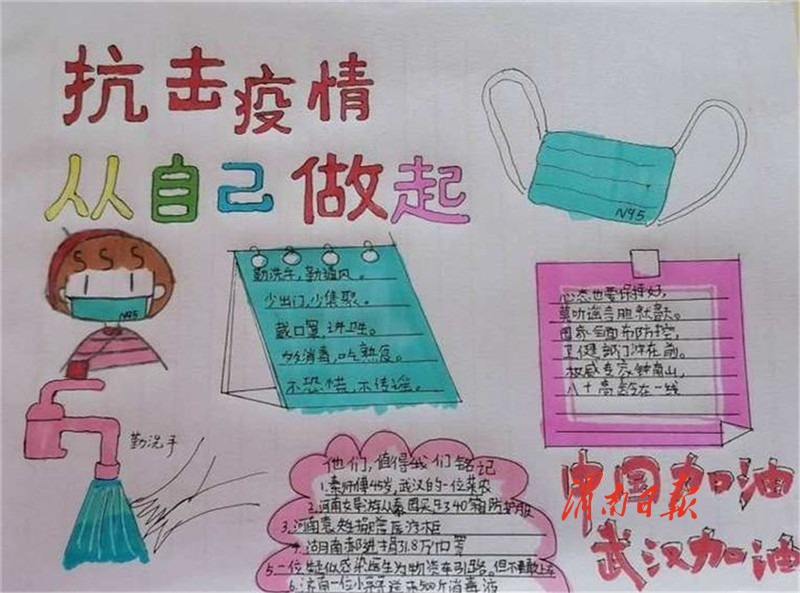 抗击疫情
从自己做起
N95
SSS
N95
勤洗手，勤通风。
少出门，少集聚。
戴口罩，讲卫生。
多消毒，吃熟食。
不恐慌，不传谣。
心态也要保持好，
莫听谣言瞎鼓
国家全面布防控，
卫健部门冲在前。
权威专家钟南山，
八十高龄在一线
勤洗手
他们，值得我们铭记
1.秦师傅45岁，武汉的一位菜农
2.河南女导游从泰国买回340箱防护服
3.河南袁
4.湖南郝进捐31.8万口罩
5.一位疑似感染医生为物资车引路。但不
6.济南一位小 送来500斤消毒液
中国加油
渭南日报
武汉加油